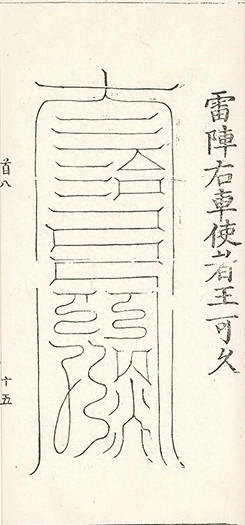 雷陣右車使者王可久
首八
十五